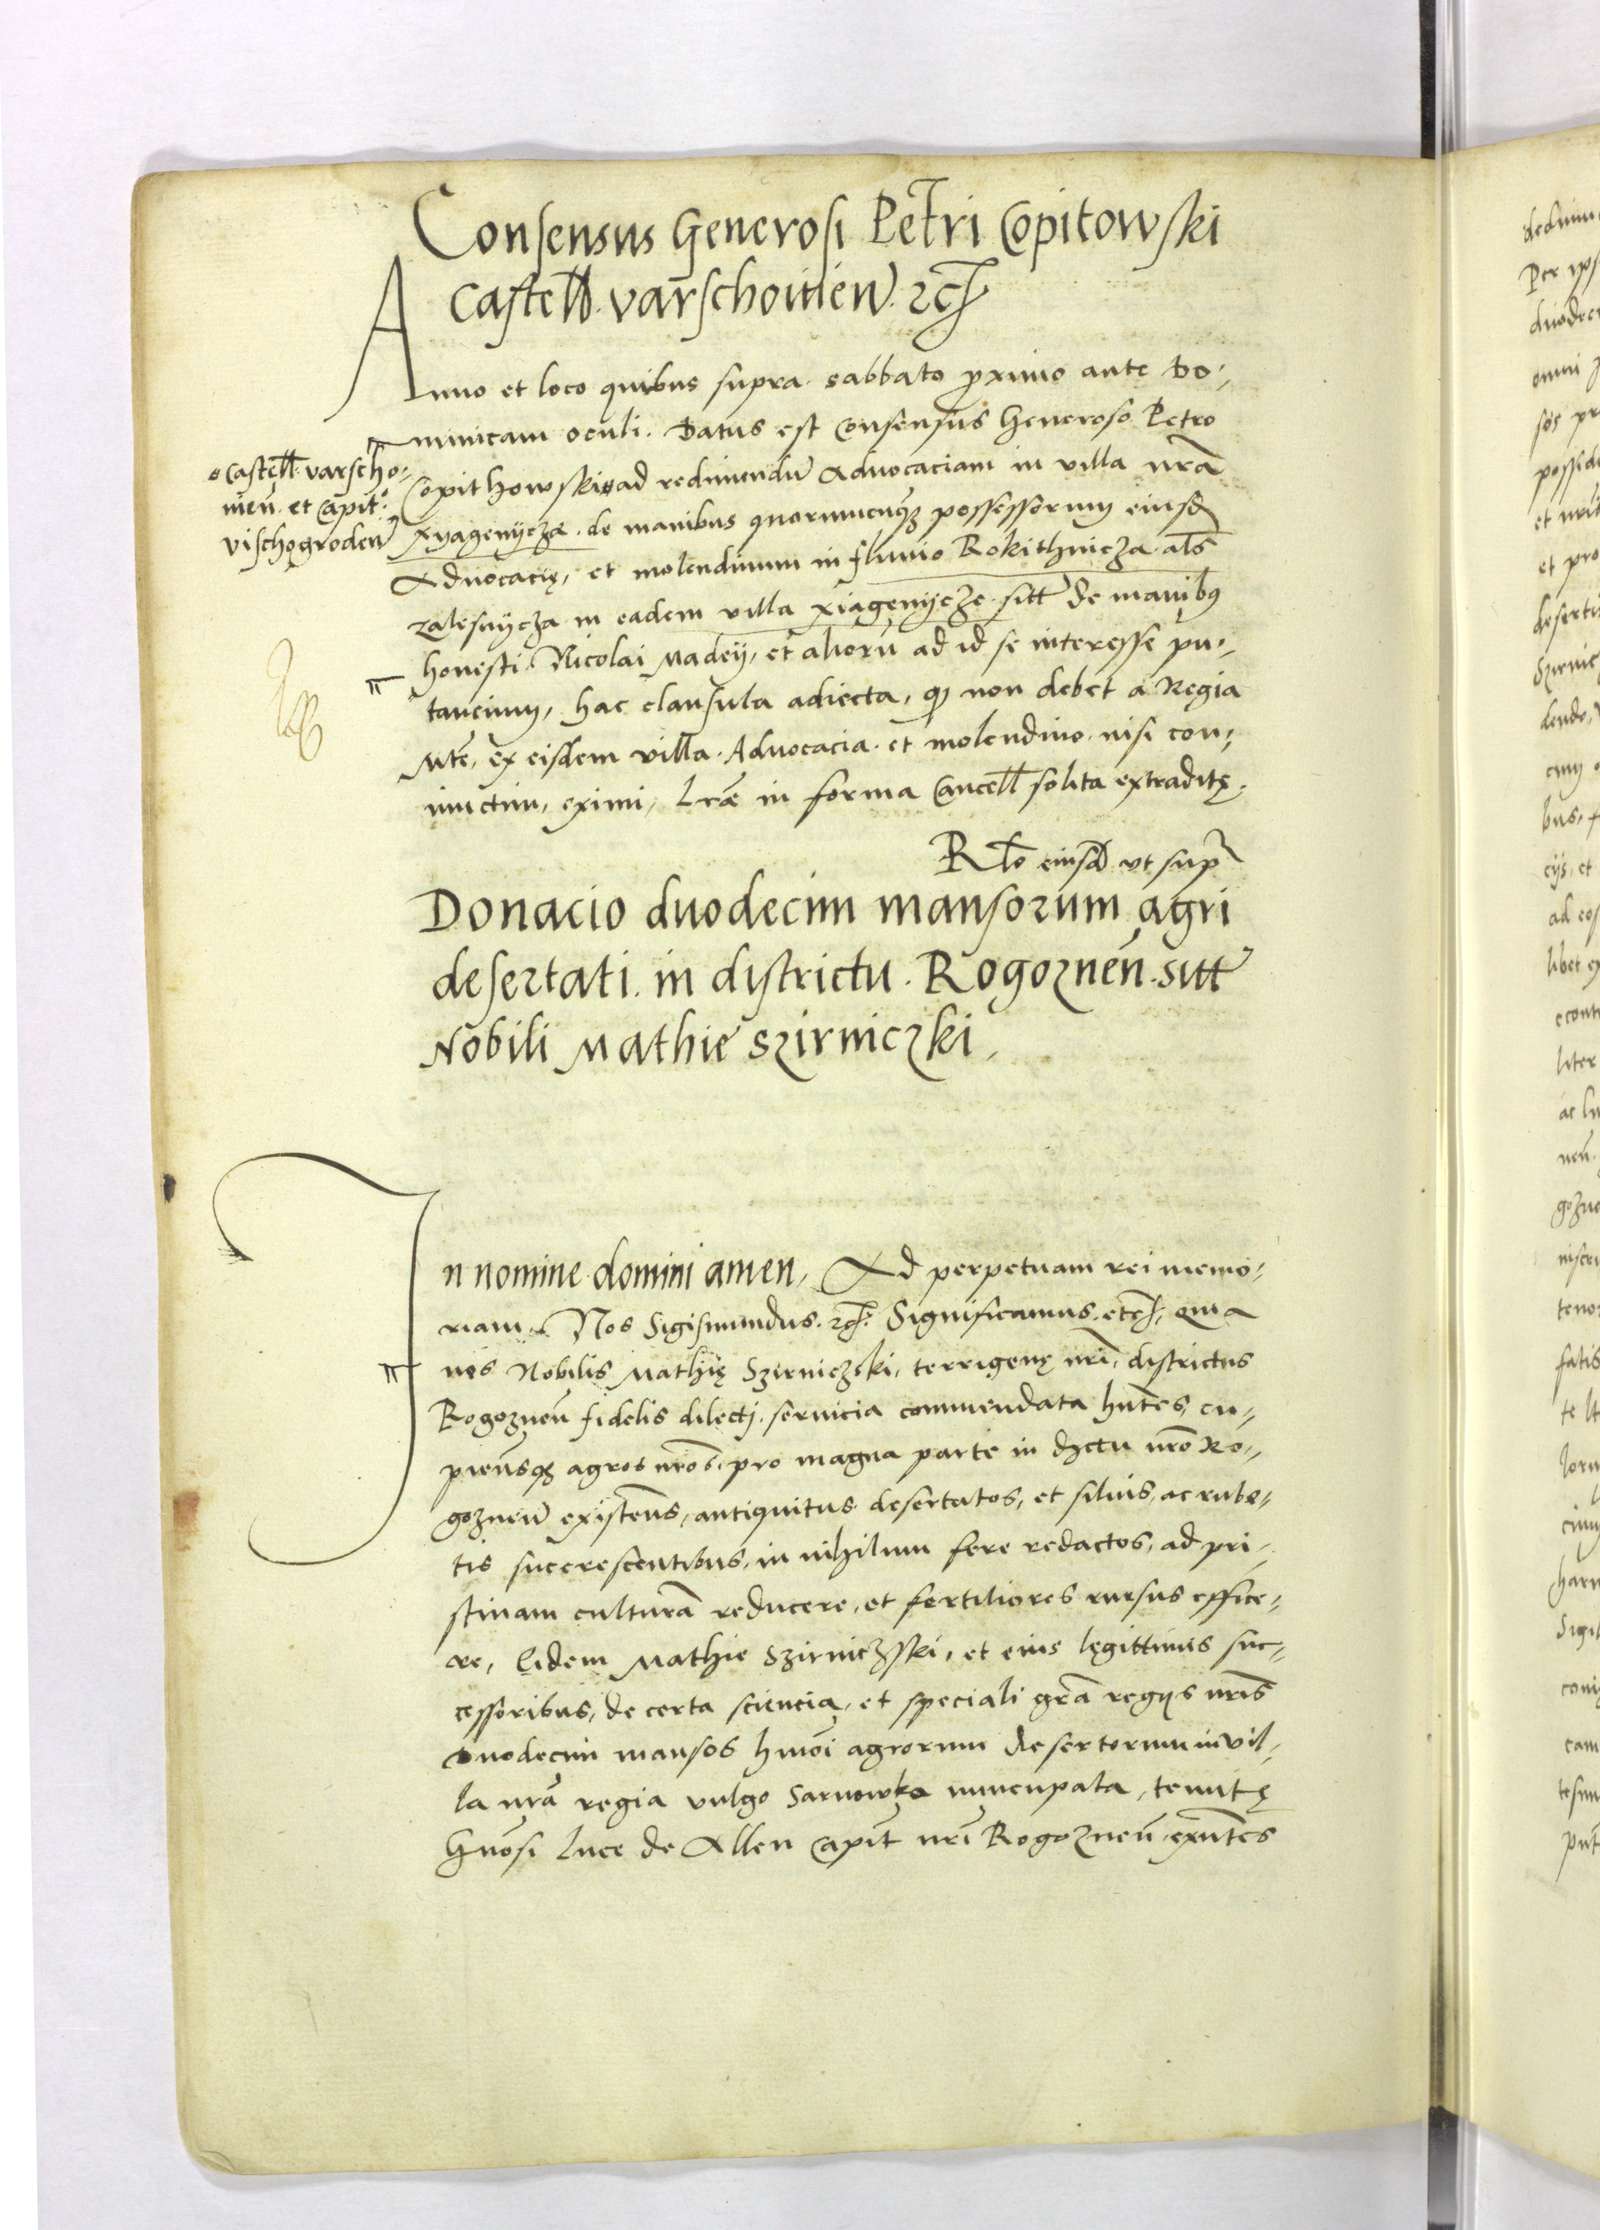 Consensus Generosi Petri Copitowski
Castell. varschovien. etc.
Anno et loco quibus supra. sabbato proximo ante Do-
minicam oculi. Datus est Consensus Generoso Petro
Copithowski ad redimendū Advocaciam in villa nrā
Xyagenycza. de manibus quorumcunq3 possessorum eiusd
Advocacię, et molendinum in fluvio Rokithnicza als
zalesnycza in eadem villa xiagenycze sitt de manibus
honesti Nicolai Madey, et alioru ad id se interesse pu-
tancium, hac clausula adiecta, q non debet a Regia
Mte, ex eisdem villa. Advocacia. et molendino nisi con-
iunctim, eximi, Lrae in forma Cancell solita extraditę.
o Castell varscho-
vien. et Capit.
vischogroden
Rlo eiusd ut supr
Donacio duodecim mansorum agri
desertati. in districtu. Rogoznen. sitt
Nobili Mathie Szirniczki.
In nomine domini amen, Ad perpetuam rei memo-
riam. Nos Sigismundus. etc. Significamus. etc. quia
nos Nobilis Mathię Szirniczski, terrigenę nri, districtus
Rogoznen fidelis dilecti. servicia commendata hntes, cu-
piensq3 agros nros. pro magna parte in dzctu nro Ro-
goznen existens, antiquitus desertatos, et silvis, ac rube-
tis succrescentibus, in nihilum fere redactos, ad pri-
stinam culturā reducere, et fertiliores rursus effice-
re, Eidem Mathie Szirniczski, et eius legittimis suc-
cessoribus, de certa sciencia, et speciali gra regiis nris
Duodecim mansos hmoi agrorum desertorum in vil-
la nra regia vulgo Sarnowka nuncupata, tenutę
Gnosi Luce de Allen Capit nri Rogoznen. exntes